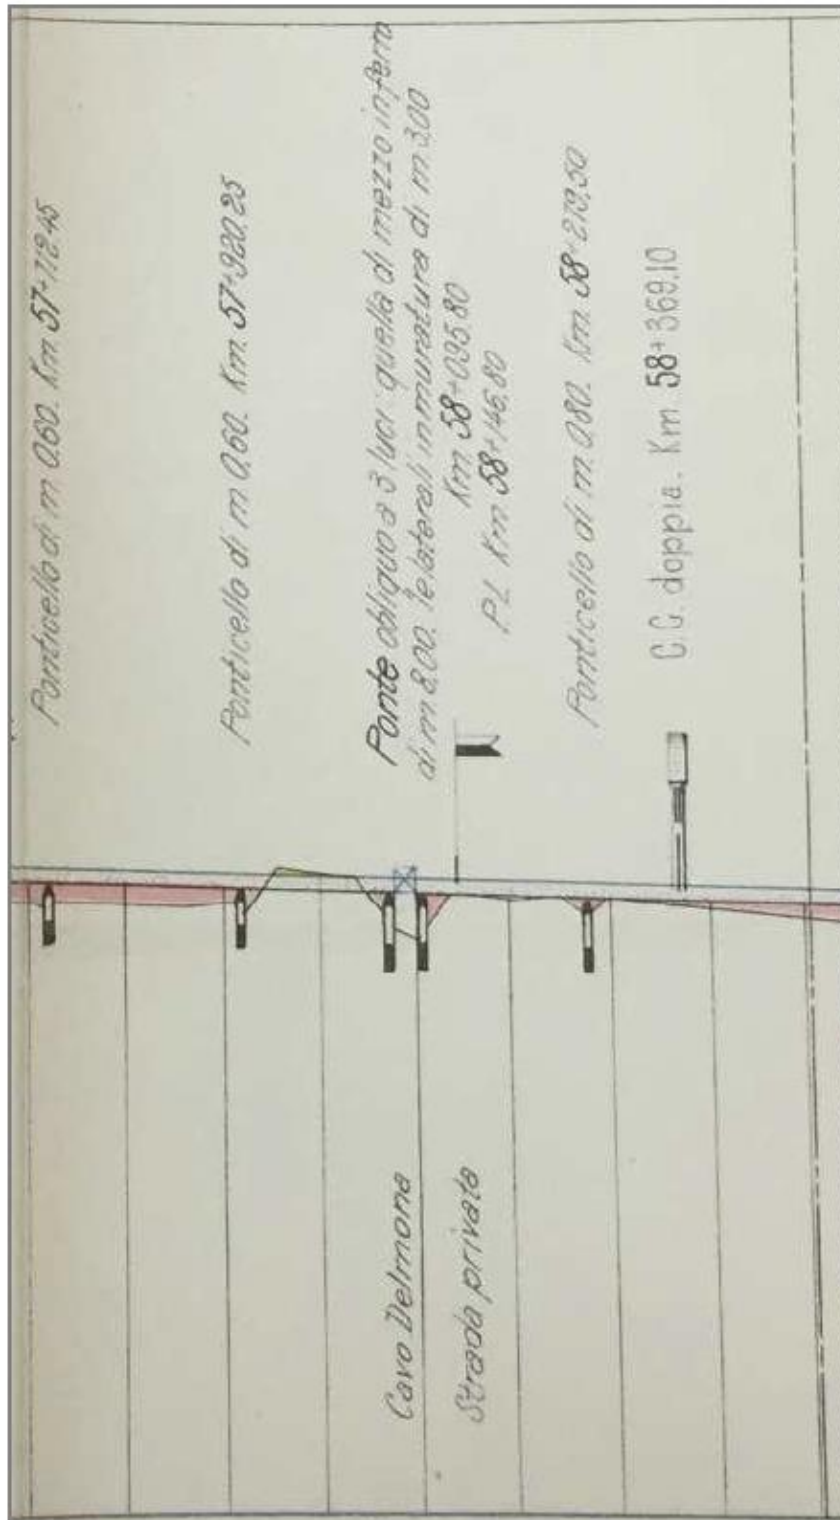 Ponticello di m 0,60. Km 57+712,45
Ponticello di m 0,60. Km. 57+920,25
Ponte obliquo a 3 luci quella di mezzo in ferro
di m 8,00. le laterali in muratura di m 3,00
Km 58+095,80
P.L. Km. 58+146,80
Ponticello di m. 0,80. Km. 58+279,50
C.C. doppia. Km. 58+369,10
Cavo Delmona
Strada privata